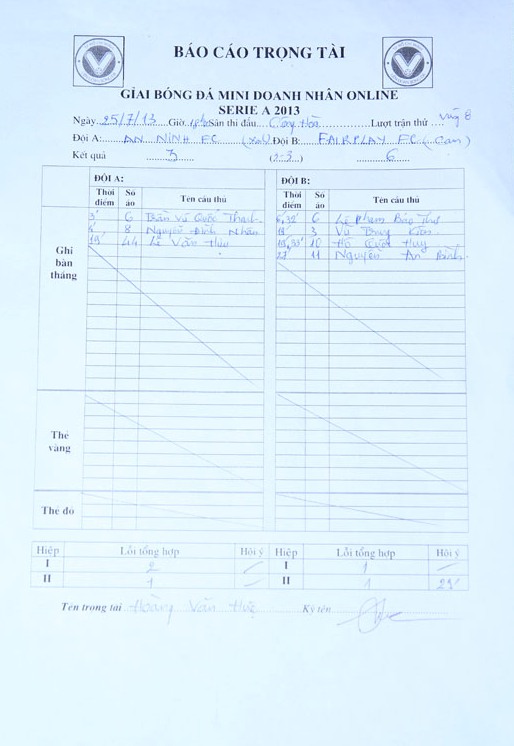 BÁO CÁO TRỌNG TÀI
GIẢI BÓNG ĐÁ MINI DOANH NHÂN ONLINE
SERIE A 2013
Ngày 25/7/13 Giờ Sân thi đấu Cộng Hòa Lượt trận thứ vòng 8
Đội A: AN NINH FC Đội B: FAIRPLAY FC (Cam)
Kết quả 3 (2-3) 6
ĐỘI A: ĐỘI B:
Thời điểm Số áo Tên cầu thủ Thời điểm Số áo Tên cầu thủ
Ghi bàn thắng
3' 6 Trần Vũ Quốc Thanh 6 Lê Phạm Bảo Thư
8 Nguyễn Đình Nhân 3 Vũ Trung Kiên
19' 44 Lê Văn Thu 10 Hồ Huy
27' 11 Nguyễn An Bình
Thẻ vàng
Thẻ đỏ
Hiệp Lỗi tổng hợp Hội ý Hiệp Lỗi tổng hợp Hội ý
I 2 I 1
II 1 II 1 29'
Tên trọng tài Hoàng Văn Huệ Ký tên